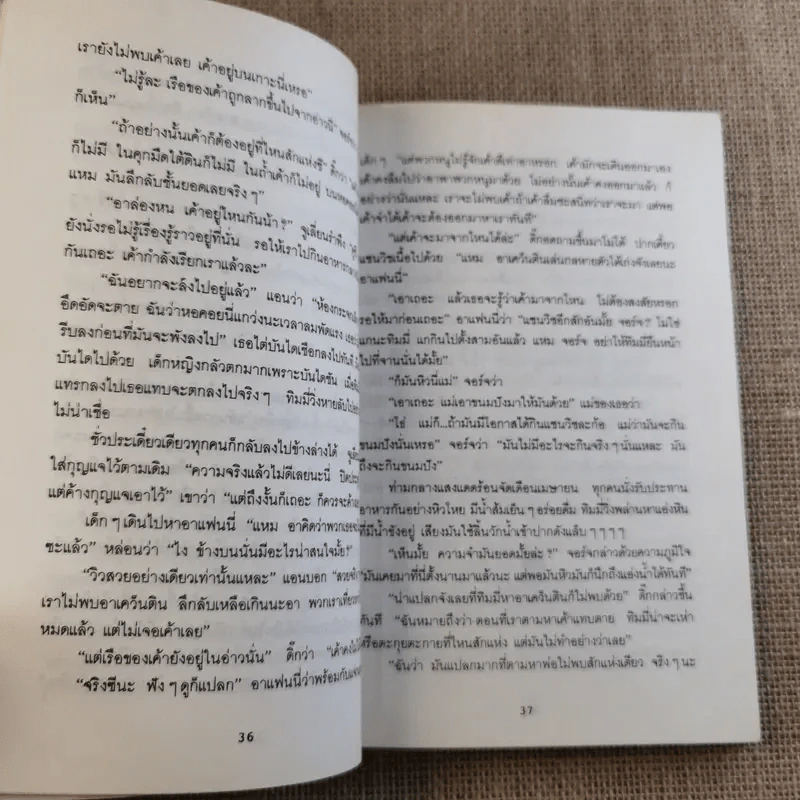 เรายังไม่พบเค้าเลย เค้าอยู่บนเกาะนี่เหรอ”
“ไม่รู้ละ เรือของเค้าถูกลากขึ้นไปจากอ่าวนี่”
ก็เห็น”
“ถ้าอย่างนั้นเค้าก็ต้องอยู่ที่ไหนสักแห่งซี” ดิ๊กว่า
ก็ไม่มี ในคุกมืดใต้ดินก็ไม่มี ในถ้ำเค้าก็ไม่อยู่
แหม มันลึกลับชั้นยอดเลยจริงๆ”
“อาล่องหน เค้าอยู่ไหนกันน้า?” จูเลี่ยนรำพึง
ยังนั่งรอไม่รู้เรื่องรู้ราวอยู่ที่นั่น รอให้เราไปกินอาหาร
กันเถอะ เค้ากำลังเรียกเราแล้วละ”
“ฉันอยากจะลงไปอยู่แล้ว” แอนว่า “ห้องกระจก
อึดอัดจะตาย ฉันว่าหอคอยนี่แกว่งนะเวลาลมพัดแรง
รีบลงก่อนที่มันจะพังลงไป” เธอไต่บันไดเชือกลงไปทันที
บันไดไปด้วย เด็กหญิงกลัวตกมากเพราะบันไดชัน
แทรกลงไปเธอแทบจะตกลงไปจริงๆ ทิมมี่วิ่งหายลับไป
ไม่น่าเชื่อ
ชั่วประเดี๋ยวเดียวทุกคนก็กลับลงไปข้างล่างได้
ใส่กุญแจไว้ตามเดิม “ความจริงแล้วไม่ดีเลยนะนี่
แต่ค้างกุญแจเอาไว้” เขาว่า “แต่ถึงงั้นก็เถอะ
เด็กๆ เดินไปหาอาแฟนนี่ “แหม อาคิดว่าพวกเธอ
ซะแล้ว” หล่อนว่า “ไง ข้างบนนั่นมีอะไรน่าสนใจมั้ย?
“วิวสวยอย่างเดียวเท่านั้นแหละ” แอนบอก
เราไม่พบอาเคว็นติน ลึกลับเหลือเกินนะอา พวกเราเที่ยว
หมดแล้ว แต่ไม่เจอเค้าเลย”
“แต่เรือของเค้ายังอยู่ในอ่าวนั่น” ดิ๊กว่า
“จริงซีนะ ฟังๆ ดูก็แปลก” อาแฟนนี่ว่าพร้อมกับ
36
เด็กๆ “แต่พวกหนูไม่รู้จักเค้าดีเท่าอาหรอก เค้ามักจะเดินออกมาเอง
เค้าคงลืมไปว่าอาพาพวกหนูมาด้วย ไม่อย่างนั้นเค้าคงออกมาแล้ว ก็
อย่างว่านั่นแหละ เราจะไม่พบเค้าถ้าเค้าลืมซะสนิทว่าเราจะมา แต่พอ
เค้าจำได้เค้าจะต้องออกมาหาเราทันที”
“แต่เค้าจะมาจากไหนได้ล่ะ” ดิ๊กอดถามขึ้นมาไม่ได้ ปากเคี้ยว
แซนวิชเนื้อไปด้วย “แหม อาเคว็นตินเล่นกลหายตัวได้เก่งจังเลยนะ
อาแฟนนี่”
“เอาเถอะ แล้วเธอจะรู้ว่าเค้ามาจากไหน ไม่ต้องสงสัยหรอก
รอให้มาก่อนเถอะ” อาแฟนนี่ว่า “แซนวิชอีกสักอันมั้ย จอร์จ? ไม่ใช่
แกนะทิมมี่ แกกินไปตั้งสามอันแล้ว แหม จอร์จ อย่าให้ทิมมี่ยื่นหน้า
ไปที่จานนั่นได้มั้ย”
“ก็มันหิวนี่แม่” จอร์จว่า
“เอาเถอะ แม่เอาขนมปังมาให้มันด้วย” แม่ของเธอว่า
“โธ่ แม่ก็...ถ้ามันมีโอกาสได้กินแซนวิชละก้อ แม่ว่ามันจะกิน
ขนมปังนั่นเหรอ” จอร์จว่า “มันไม่มีอะไรจะกินจริงๆ นั่นแหละ มัน
ถึงจะกินขนมปัง”
ท่ามกลางแสงแดดร้อนจัดเดือนเมษายน ทุกคนนั่งรับประทาน
อาหารกันอย่างหิวโหย มีน้ำส้มเย็นๆ อร่อยดื่ม ทิมมี่วิ่งพล่านหาแอ่งหิน
ที่มีน้ำขังอยู่ เสียงมันใช้ลิ้นวักน้ำเข้าปากดังแล็บๆๆๆ
“เห็นมั้ย ความจำมันยอดมั้ยล่ะ?” จอร์จกล่าวด้วยความภูมิใจ
“มันเคยมาที่นี่ตั้งนานมาแล้วนะ แต่พอมันหิวมันก็นึกถึงแอ่งน้ำได้ทันที”
“น่าแปลกจังเลยที่ทิมมี่หาอาเคว็นตินก็ไม่พบด้วย” ดิ๊กกล่าวขึ้น
ทันที “ฉันหมายถึงว่า ตอนที่เราตามหาเค้าแทบตาย ทิมมี่น่าจะเห่า
หรือตะกุยตะกายที่ไหนสักแห่ง แต่มันไม่ทำอย่างว่าเลย”
“ฉันว่า มันแปลกมากที่ตามหาพ่อไม่พบสักแห่งเดียว จริงๆ นะ
37